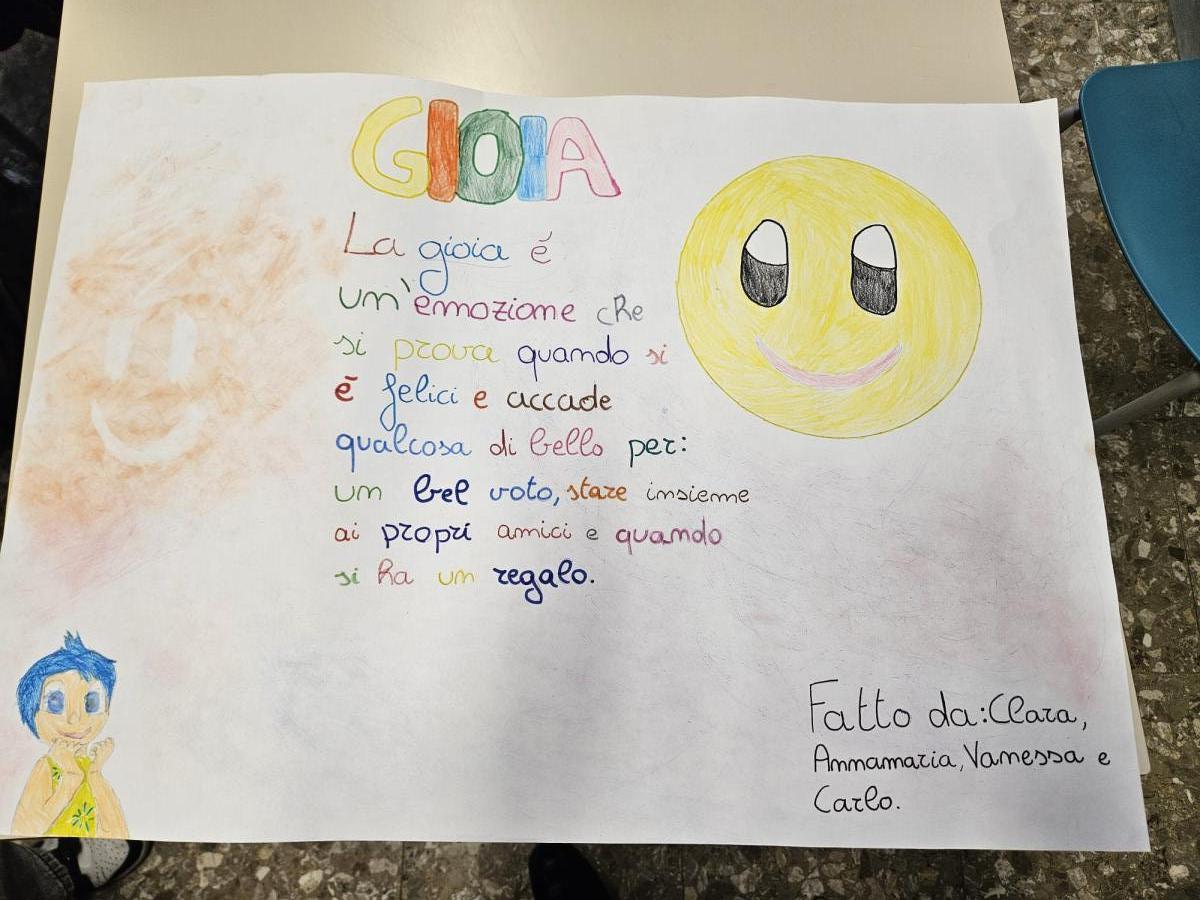 GIOIA
La gioia é
un'emozione che
si prova quando si
é felici e accade
qualcosa di bello per:
un bel voto, stare insieme
ai propri amici e quando
si ha un regalo.
Fatto da: Clara,
Annamaria, Vanessa e
Carlo.